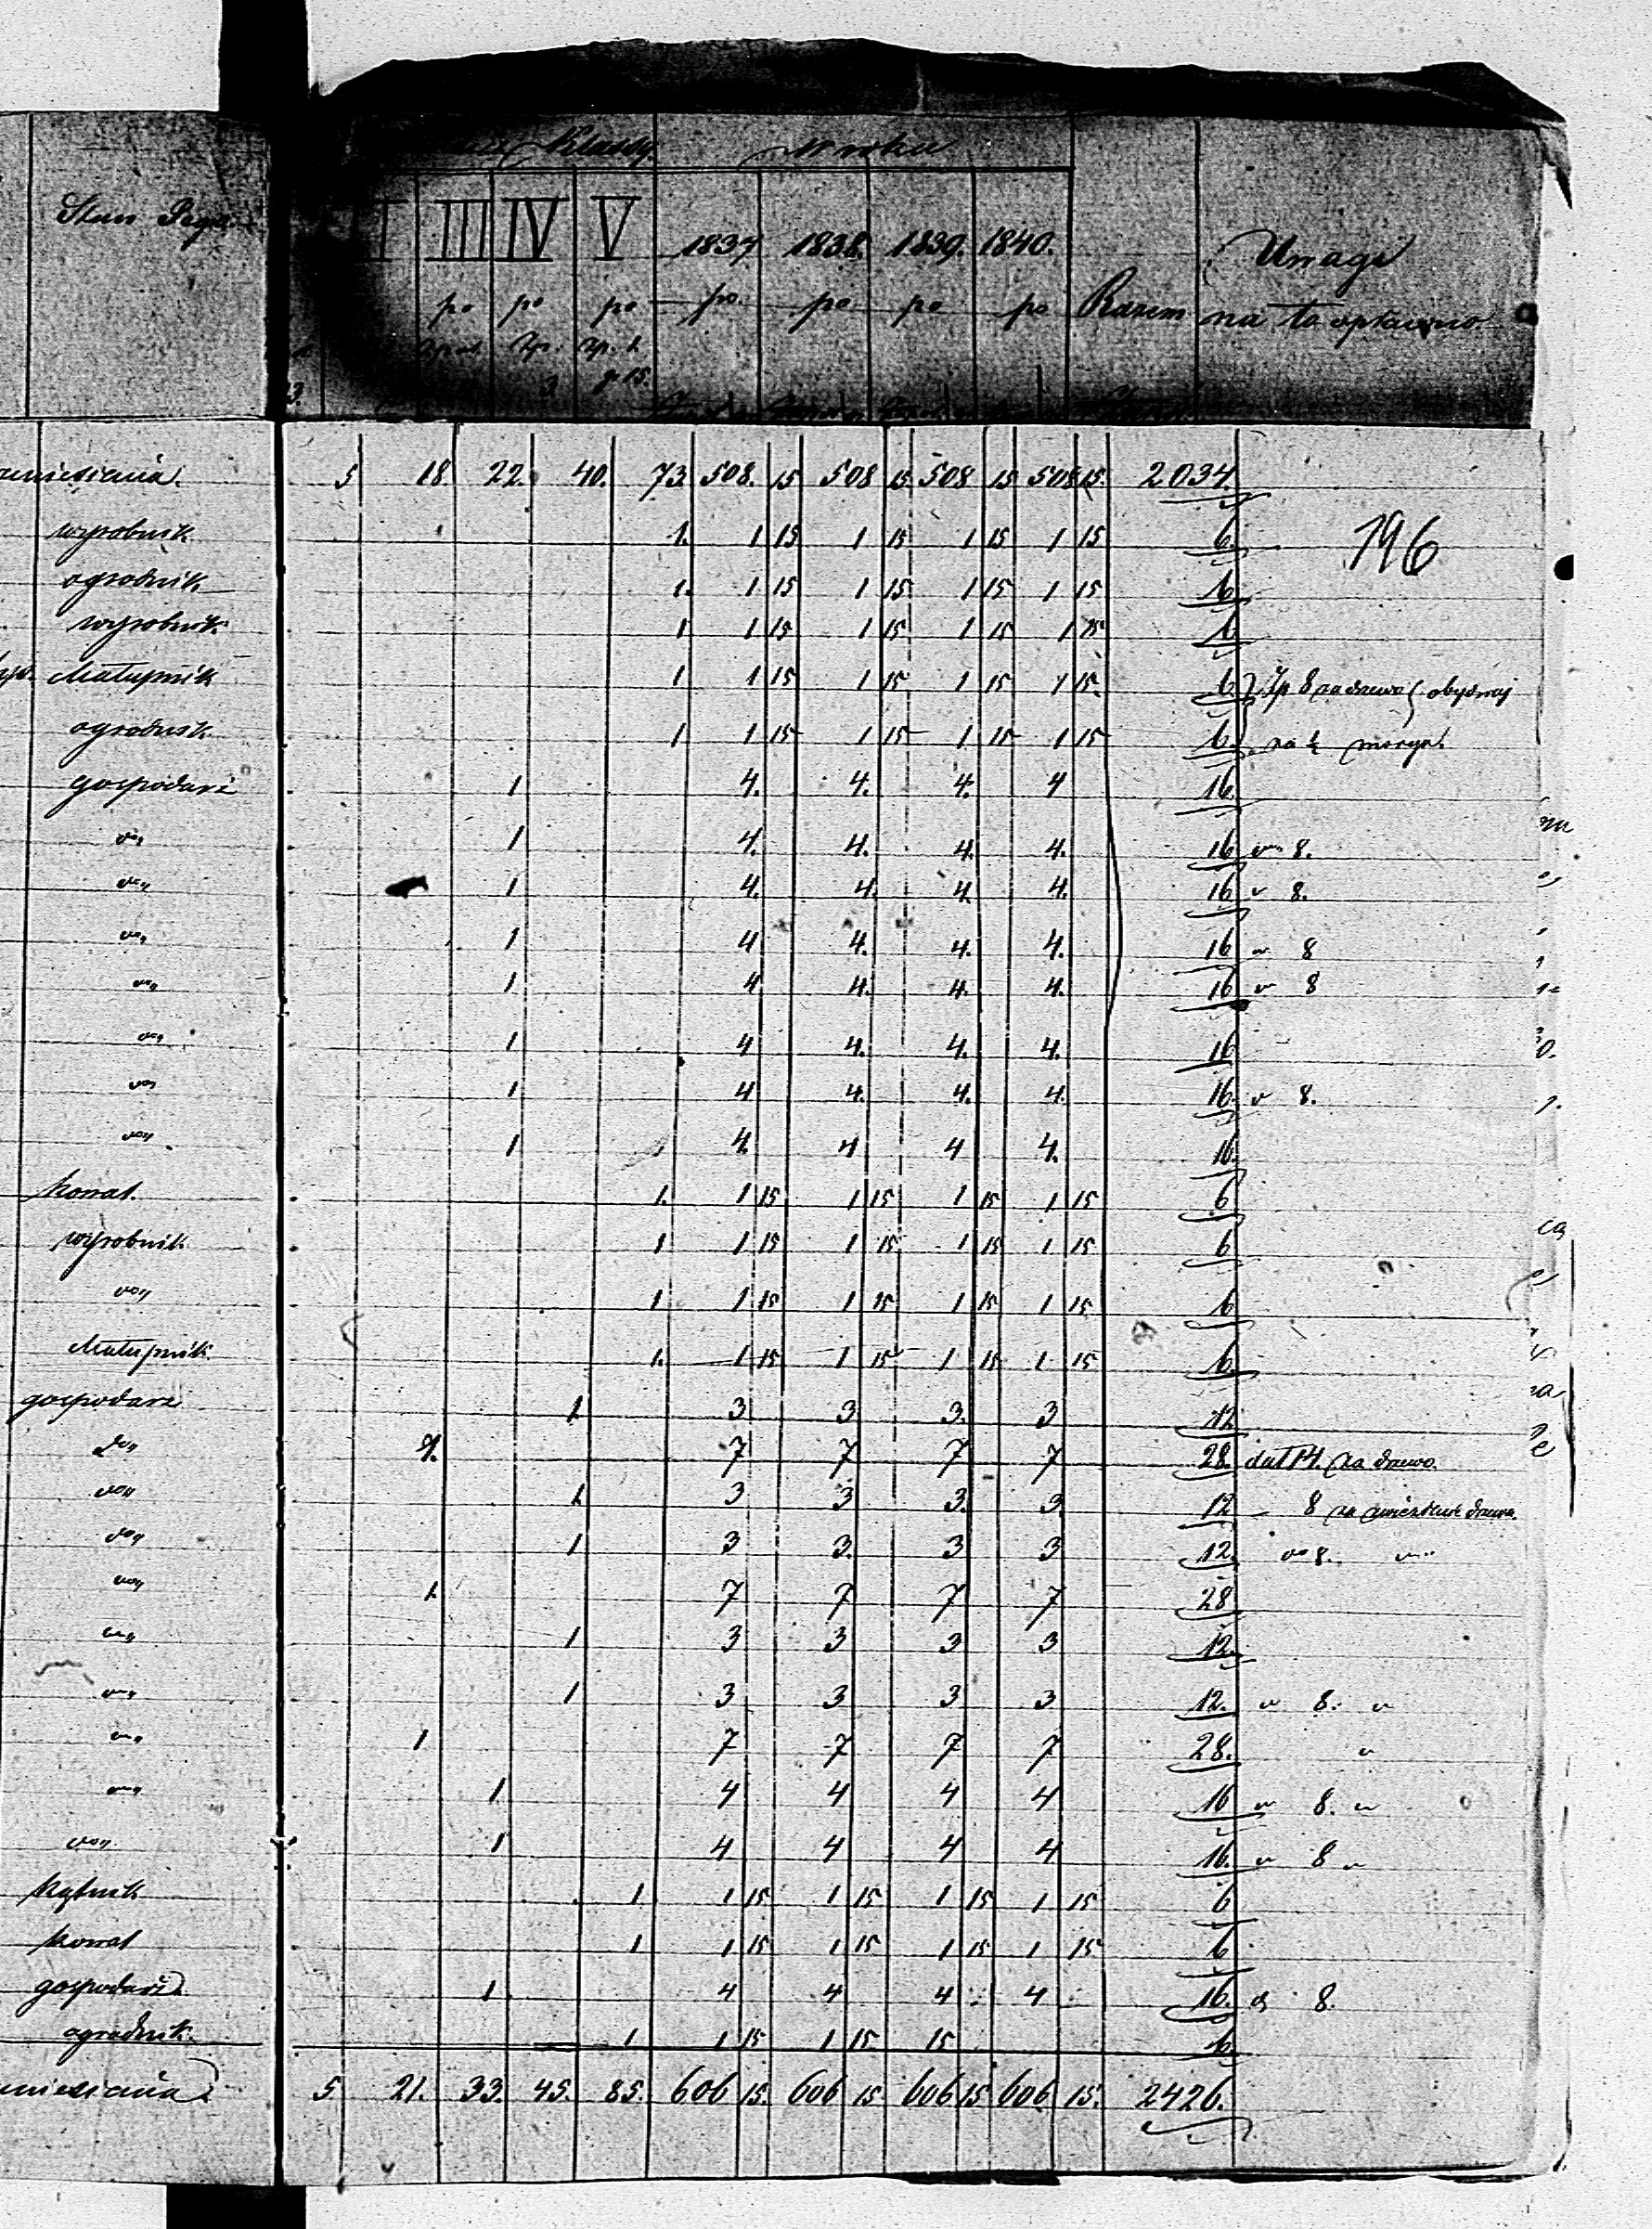 Klassy. W roku
Stan Jego III IV V 1837 1838. 1839. 1840. Uwagi
po po po po po po po Razem na to opłacono
3 g 15.
5 18 22. 40. 73. 508. 15 508 15 508 15 508 15. 2034.
wyrobnik 1. 1 15 1 15 1 15 1 15 6. 196
ogrodnik 1. 1 15 1 15 1 15 1 15 6.
wyrobnik 1 1 15 1 15 1 15 1 15 6
Chałupnik 1 1 15 1 15 1 15 1 15. 6. Zp 8 za drewo obydwaj
ogrodnik 1 1 15 1 15 1 15 1 15 6. morga
gospodarz 1 4. 4. 4. 4 16.
" 1 4. 4. 4. 4. 16 " 8.
" 1 4. 4. 4 4. 16 " 8.
" 1 4 4. 4. 4. 16 " 8
" 1 4 4. 4. 4. 16 " 8
" 1 4 4. 4. 4. 16
" 1 4 4. 4. 4. 16. " 8.
" 1 4. 4 4 4. 16.
Kowal. 1. 1 15 1 15 1 15 1 15 6
wyrobnik 1 1 15 1 15 1 15 1 15 6
" 1 1 15 1 15 1 15 1 15 6
Chałupnik. 1. 1 15 1 15 1 15 1 15 6.
gospodarz 1. 3 3 3. 3 12
" 1. 7 7 7 7 28. dał 14. za drewo.
" 1. 3 3 3. 3 12 8 drewa
" 1 3 3. 3 3 12. " 8. "
" 1. 7 7 7 7 28
" 1 3 3 3 3 12.
" 1 3 3 3 3 12. " 8. "
" 1 7 7 7 7 28. "
" 1 4 4 4 4 16 " 8. "
" 1 4 4 4 4 16. " 8 "
Kątnik 1 1 15 1 15 1 15 1 15 6
Kowal 1 1 15 1 15 1 15 1 15 6
gospodarz 1. 4 4 4 4 16. " 8.
ogrodnik. 1 1 15 1 15 15 6.
5 21. 33. 45. 85. 606 15. 606 15 606 15 606 15. 2426.